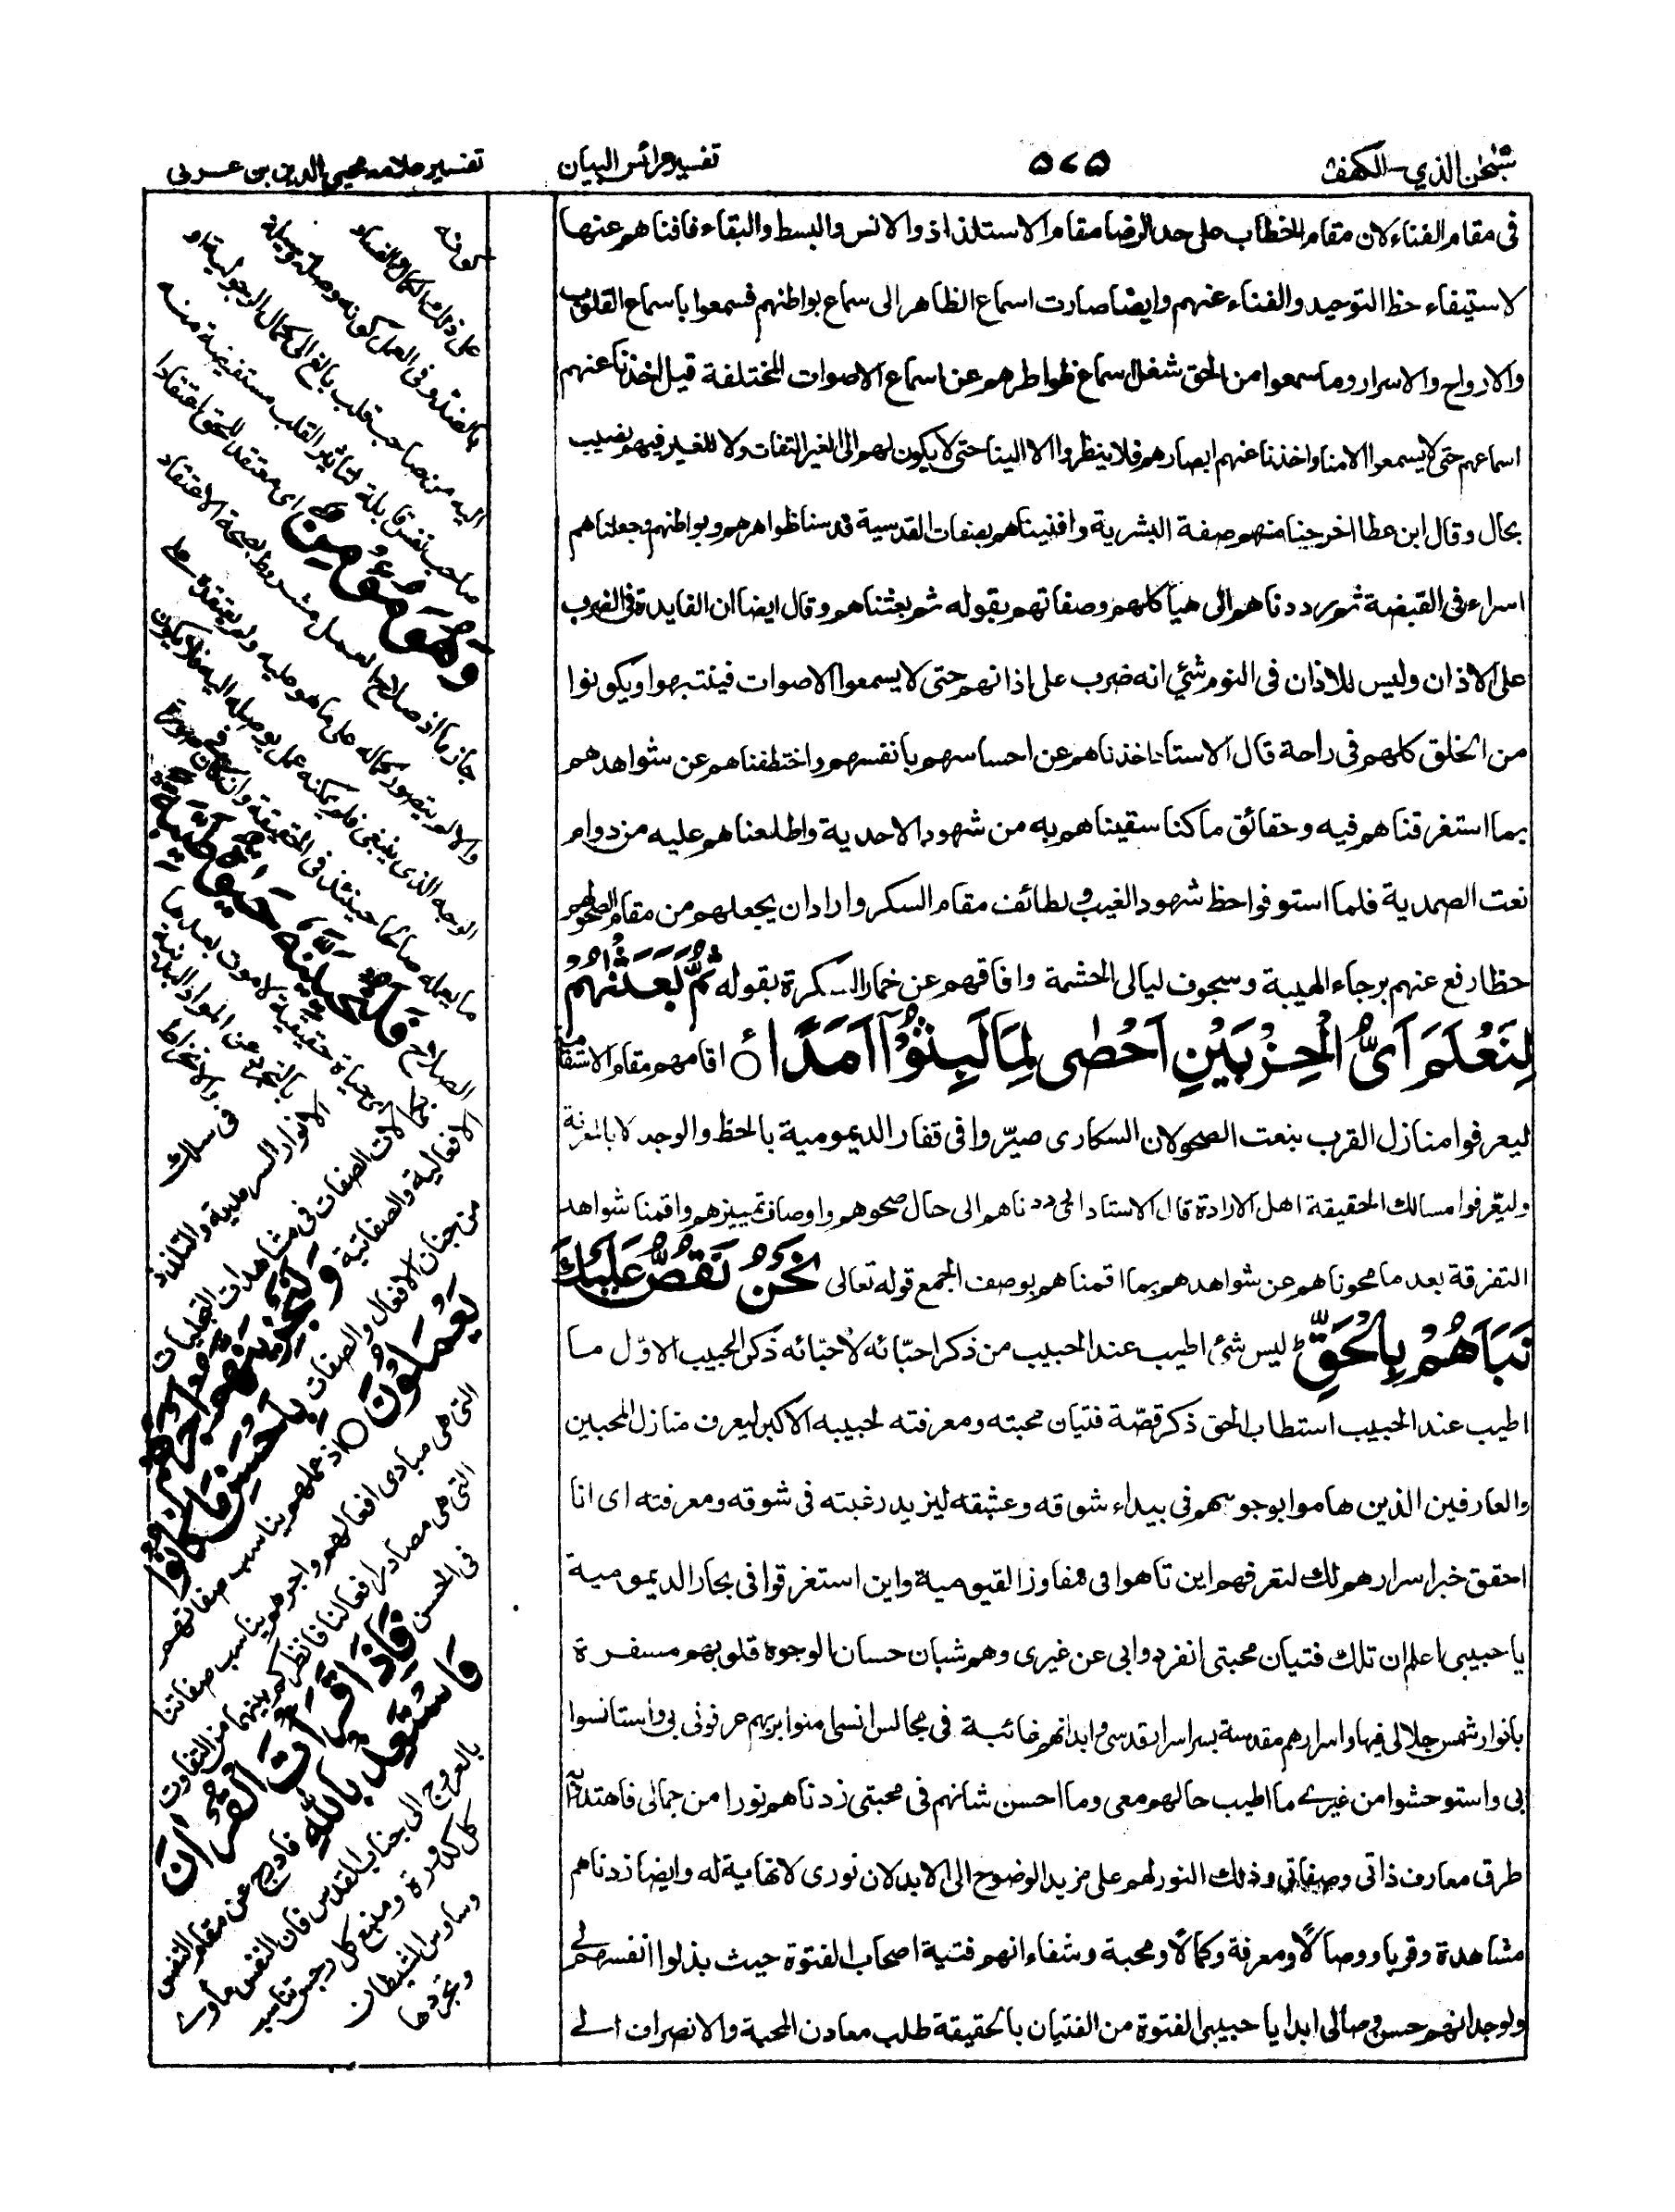 سبحٰن الذي - الكهف
٥٧٥
تفسير عرائس البيان
تفسير علامه محيي الدين بن عربى
فى مقام الفناء لان مقام الخطاب على حد الرضا مقام الاستلذاذ والانس والبسط والبقاء فافناهم عنها
لاستيفاء حظ التوحيد والفناء عنهم وايضا صارت اسماع الظاهر الى سماع بواطنهم فسمعوا باسماع القلوب
والارواح والاسرار وما سمعوا من الحق شغل اسماع ظواهرهم عن اسماع الاصوات المختلفة قيل اخذنا عنهم
اسماعهم حتى لا يسمعوا الا منا واخذنا عنهم ابصارهم فلا ينظروا الا الينا حتى لا يكون لهم الى الغير التفات ولا للغير فيهم نصيب
بحال وقال ابن عطا اخرجنا منهم صفة البشرية وافنيناهم بصفات القدسية قدسنا ظواهرهم وبواطنهم وجعلناهم
اسراء فى القبضة ثم رددناهم الى هياكلهم وصفاتهم بقوله ثم بعثناهم وقال ايضا ان الفايدة فى الضرب
على الاذان وليس للاذان فى النوم شئ انه ضرب على اذانهم حتى لا يسمعوا الاصوات فينتبهوا ويكونوا
من الخلق كلهم فى راحة قال الاستاذ اخذناهم عن احساسهم بانفسهم واختطفناهم عن شواهدهم
بما استغرقناهم فيه وحقائق ما كنا سقيناهم به من شهود الاحدية واطلعناهم عليه من دوام
نعت الصمدية فلما استوفوا حظ شهود الغيب ولطائف مقام السكر واراد ان يجعلهم من مقام الصحو لهم
حظا رفع عنهم برجاء الهيبة وسجوف ليالى الحشمة وافاقهم عن خمار السكرة بقوله ثُمَّ بَعَثْنٰهُمْ
لِنَعْلَمَ اَىُّ الْحِزْبَيْنِ اَحْصٰى لِمَا لَبِثُوْٓا اَمَدًا ○ اقامهم مقام الاستقامة
ليعرفوا منازل القرب بنعت الصحو لان السكارى صيّروا فى قفار الديمومية بالحظ والوجد لا بالمعرفة
وليعّرفوا مسالك الحقيقة اهل الارادة قال الاستاد اى رددناهم الى حال صحوهم واوصاف تمييزهم واقمنا شواهد
التفرقة بعد ما محوناهم عن شواهدهم بما اقمناهم بوصف الجمع قوله تعالى نَحْنُ نَقُصُّ عَلَيْكَ
نَبَاَهُمْ بِالْحَقِّ ط ليس شئ اطيب عند الحبيب من ذكر احبّائه لاحبّائه ذكر الحبيب الاوّل ما
اطيب عند الحبيب استطاب الحق ذكر قصّة فتيان محبته ومعرفته لحبيبه الاكبر ليعرف منازل المحبين
والعارفين الذين هاموا بوجوههم فى بيداء شوقه وعشقه ليزيد رغبته فى شوقه ومعرفته اى انا
احقق خبر اسرارهم لك لتعرفهم اين تاهوا فى مفاوز القيومية واين استغرقوا فى بحار الديمومية
يا حبيبى اعلم ان تلك فتيان محبتى انفردوا بى عن غيرى وهم شبان حسان الوجوه قلوبهم مسفرة
بانوار شمس جلالى فيها واسرارهم مقدسة بسر اسرار قدسى وابدانهم غائبة فى مجالس انسى امنوا بربهم عرفونى بى واستانسوا
بى واستوحشوا من غيرى ما اطيب حالهم معى وما احسن شانهم فى محبتى زدناهم نورا من جمالى فاهتدوا
طرق معارف ذاتى وصفاتى وذلك النور لهم على مزيد الوضوح الى الابد لان نورى لا نهاية له وايضا زدناهم
مشاهدة وقربا ووصالًا ومعرفة وكمالًا ومحبة وشفاء انهم فتية اصحاب الفتوة حيث بذلوا انفسهم لى
ولوجدانهم حسن وصالى ابدا يا حبيبى الفتوة من الفتيان بالحقيقة طلب معادن المحبة والانصراف الى
كونه
على ذلك الكمال والفساد
بالضد وفى العمل كونه وصلة وسيلة
اليه من صاحب قلب بالغ الى كمال الرجولية او
صاحب نفس قابلة لتاثير القلب مستفيضة منه
وَهُوَ مُؤْمِنٌ اى معتقد للحق اعتقادا
جازما اذ صلاح العمل مشروط بصحة الاعتقاد
والا لم يتصور كماله على ما هو عليه ولم يعتقده على
الوجه الذى ينبغى فلم يمكنه عمل يوصله اليه فلا يكون
ما يعمله صالحا حينئذ فى الحقيقة وان كان فى صورة
الصلاح فَلَنُحْيِيَنَّهٗ حَيٰوةً طَيِّبَةً
اى حياة حقيقية لا موت بعدها
بالتجرد عن المواد البدنية والانخراط
فى سلك
الانوار السرمدية والتلذذ
بكمالات الصفات فى مشاهدات التجليات
الافعالية والصفاتية وَلَنَجْزِيَنَّهُمْ اَجْرَهُمْ
من جنان الافعال والصفات بِاَحْسَنِ مَا كَانُوْا
يَعْمَلُوْنَ ○ اذ عملهم يناسب صفاتهم
التى هى مبادى افعالهم واجرهم يناسب صفاتنا
التى هى مصادر افعالنا فانظر كم بينهما من التفاوت
فى الحسن فَاِذَا قَرَاْتَ الْقُرْاٰنَ
فَاسْتَعِذْ بِاللّٰهِ فادرج عن مقام النفس
بالعروج الى جناب القدس فان النفس ماوى
كل كدرة ومنبع كل رجس تناسب
وساوس الشيطان
وتجردها